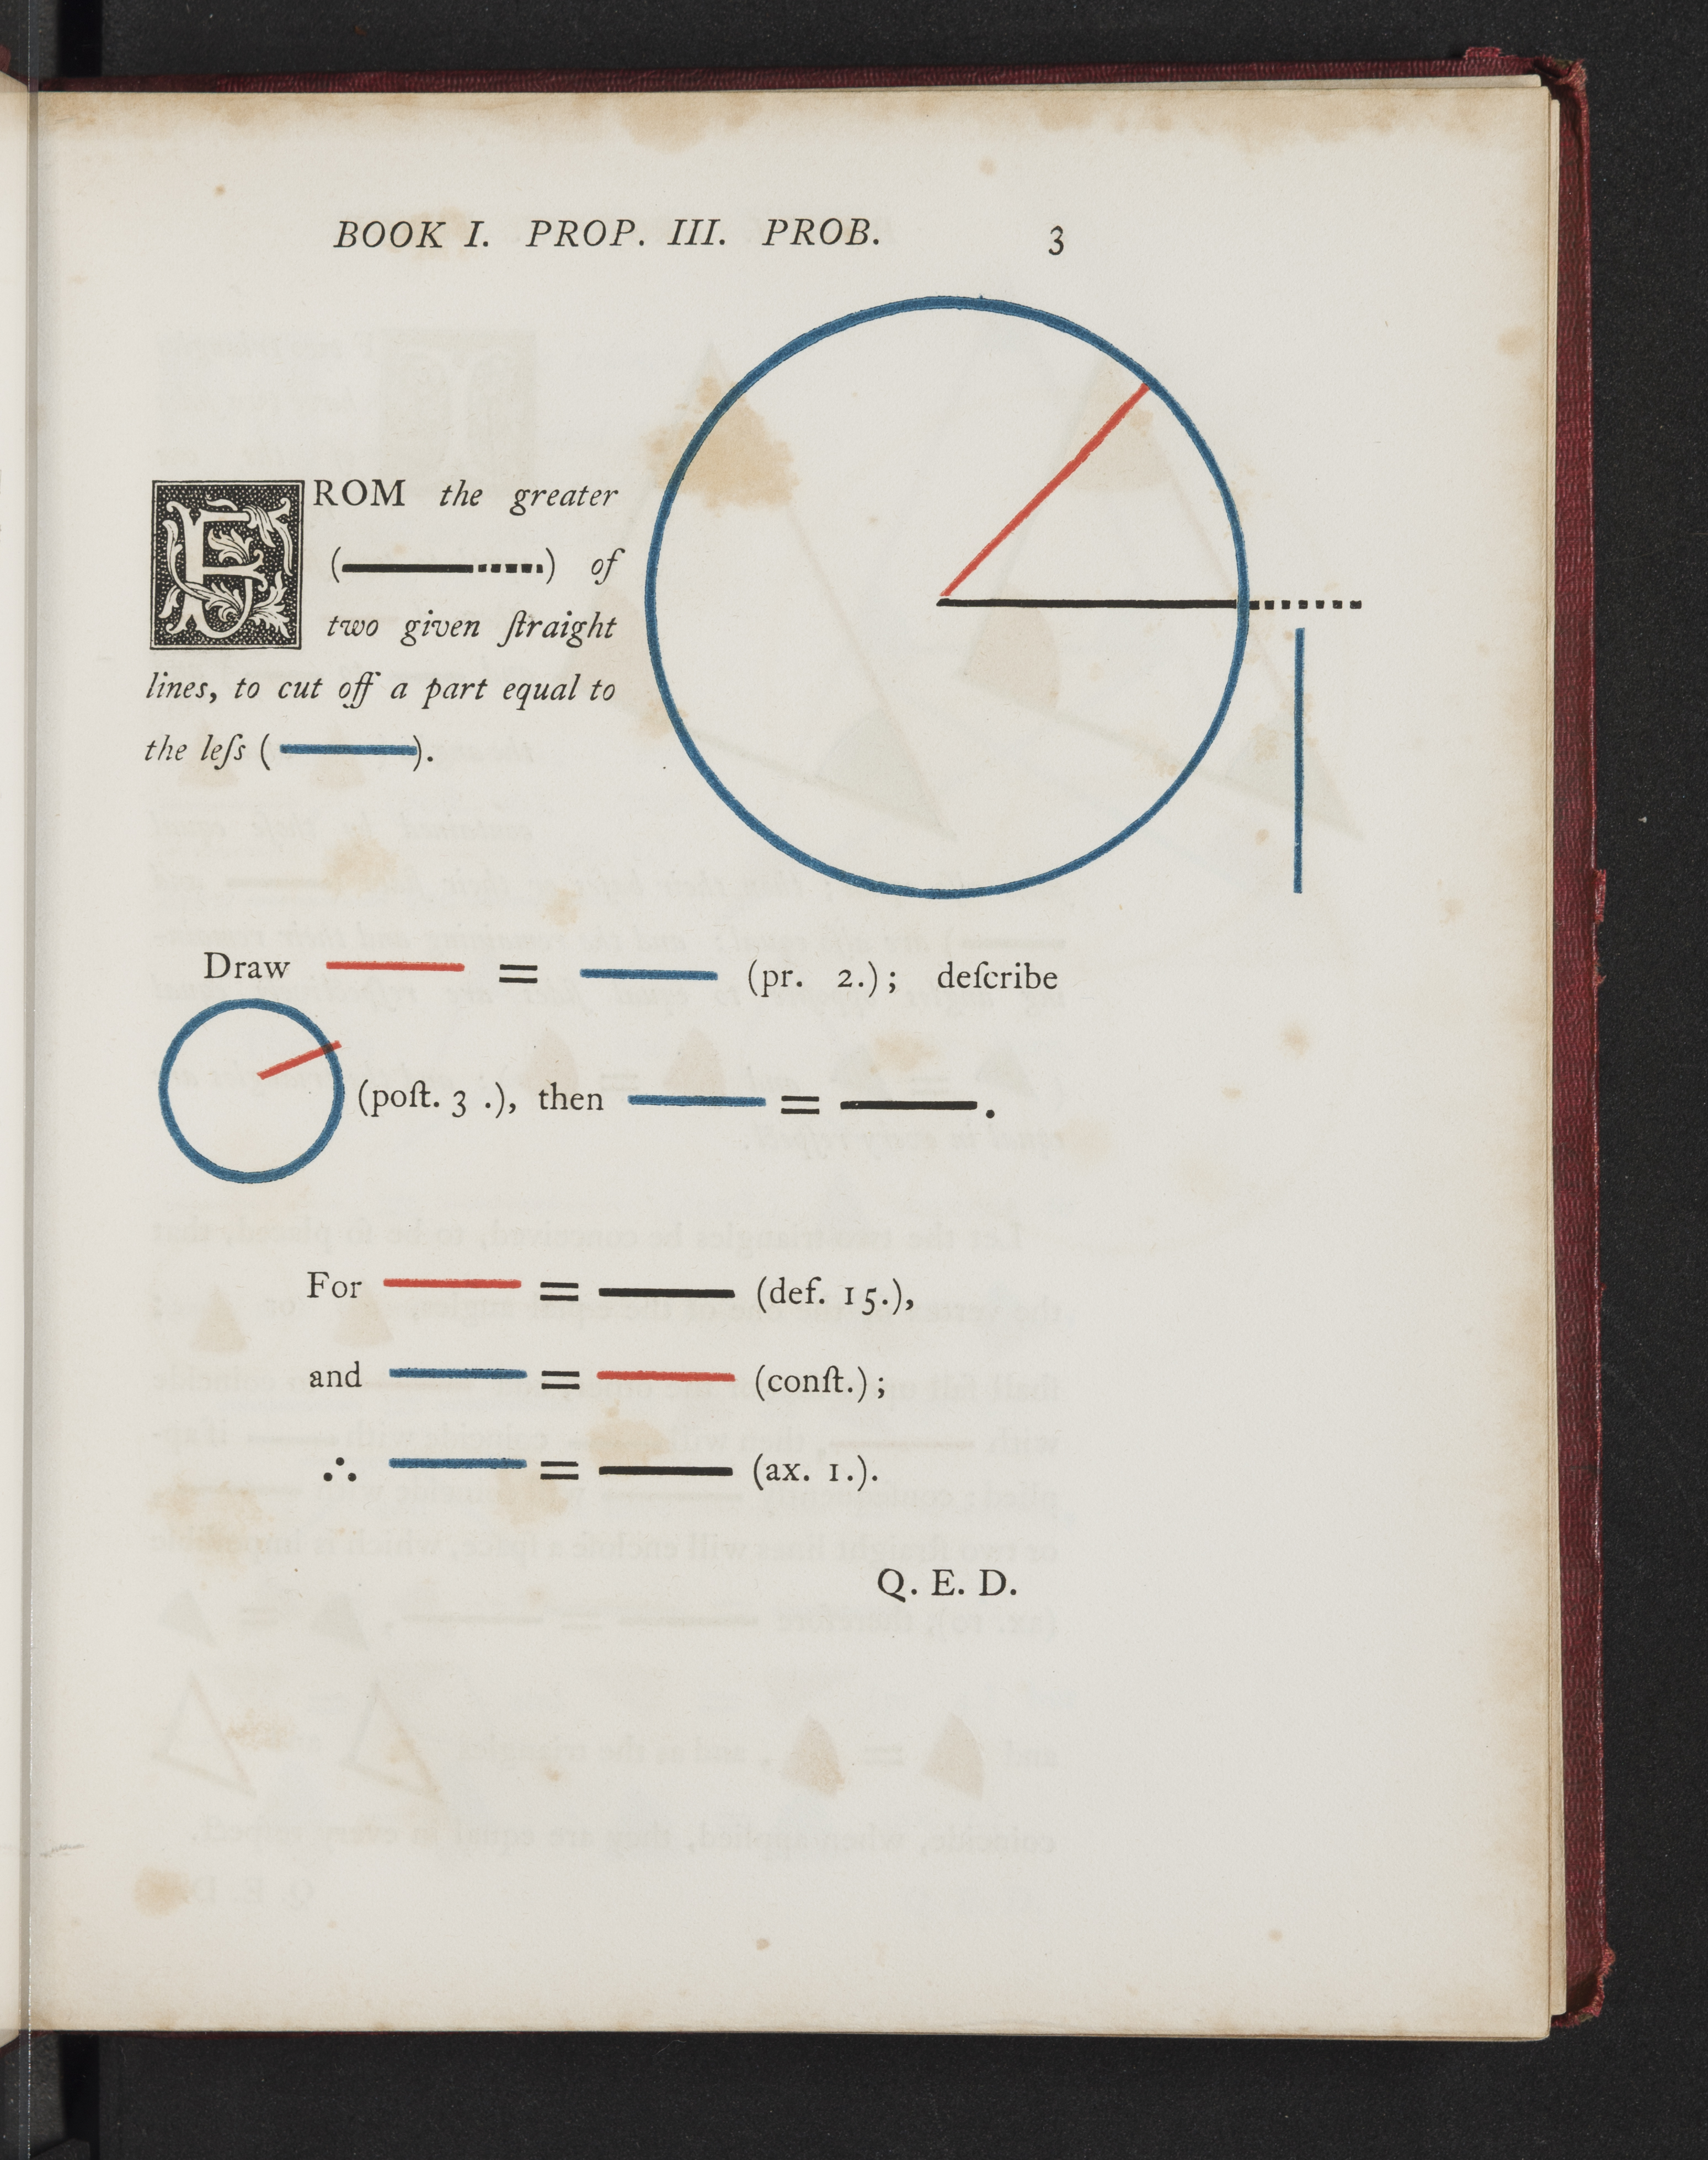 BOOK I. PROP. III. PROB. 3
FROM the greater
( ) of
two given ſtraight
lines, to cut off a part equal to
the leſs ( ).
Draw = (pr. 2.); deſcribe
(poſt. 3 .), then = .
For = (def. 15.),
and = (conſt.);
∴ = (ax. 1.).
Q. E. D.